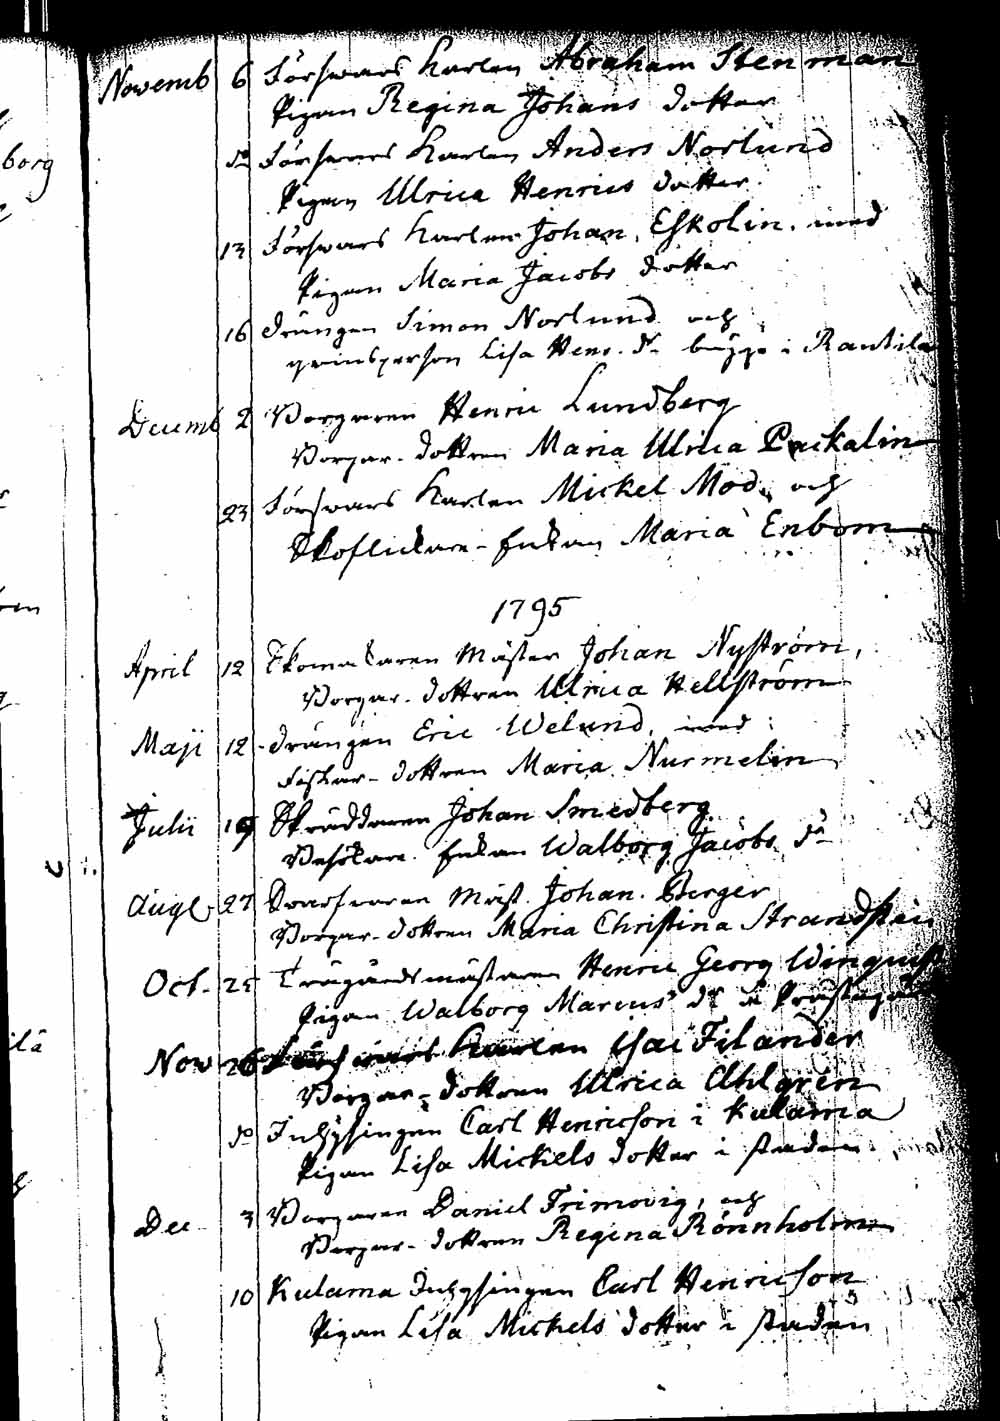 Novemb 6 Förswars Karlen Abraham Stenman
Pigan Regina Johans dotter
do Förswars Karlen Anders Norlund
Pigan Ulrica Henrics dotter
13 Förswars Karlen Johan Eskolin, med
Pigan Maria Jacobs dotter
16 drängen Simon Norlund och
qvinsperson Lisa Henr. dr bägge i Rantila
Decemb 2 Borgaren Henric Lundberg
Borgar-dottren Maria Ulrica Packalin
23 Förswars Karlen Mickel Mod, och
Skoflickare-Enkan Maria Enbom
1795
April 12 Skomakaren Mäster Johan Nyström,
Borgar-dottren Ulrica Hellström
Maji 12 drängen Eric Welund, med
Fiskar-dottren Maria Nurmelin
Julii 19 Skräddaren Johan Smedberg
Besökare Enkan Walborg Jacobs dr
Aug 27 Swarfwaren Mäst. Johan Berger
Borgar-dottren Maria Christina Strandsten
Oct. 25 Trägårdsmästaren Henric Georg Winquist
Pigan Walborg Marcus dr
Nov 26 Förswars Karlen Esai Filander
Borgar-dottren Ulrica Ahlgren
do Inhysingen Carl Henricson i Kulama
Pigan Lisa Mickels dotter i staden
Dec 3 Borgaren Daniel Trimovig, och
Borgar-dottren Regina Rönnholm
10 Kulama Inhysingen Carl Henricson
Pigan Lisa Mickels dotter i staden
borg